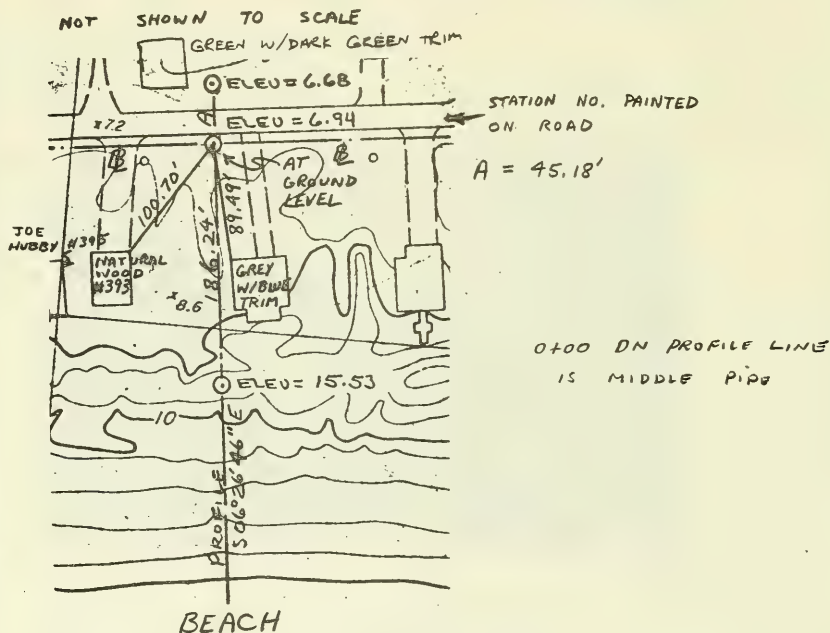 NOT SHOWN TO SCALE
GREEN W/DARK GREEN TRIM
ELEV = 6.68
A
STATION NO. PAINTED
ON ROAD
x7.2
ELEV = 6.94
A = 45.18'
BL
BL
AT
GROUND
LEVEL
100.70'
186.24'
89.49'
JOE
HUBBY #395
NATURAL
WOOD
#393
GREY
W/BLUE
TRIM
x8.6
0+00 ON PROFILE LINE
IS MIDDLE PIPE
ELEV = 15.53
10
PROFILE
S06°26'46"E
BEACH